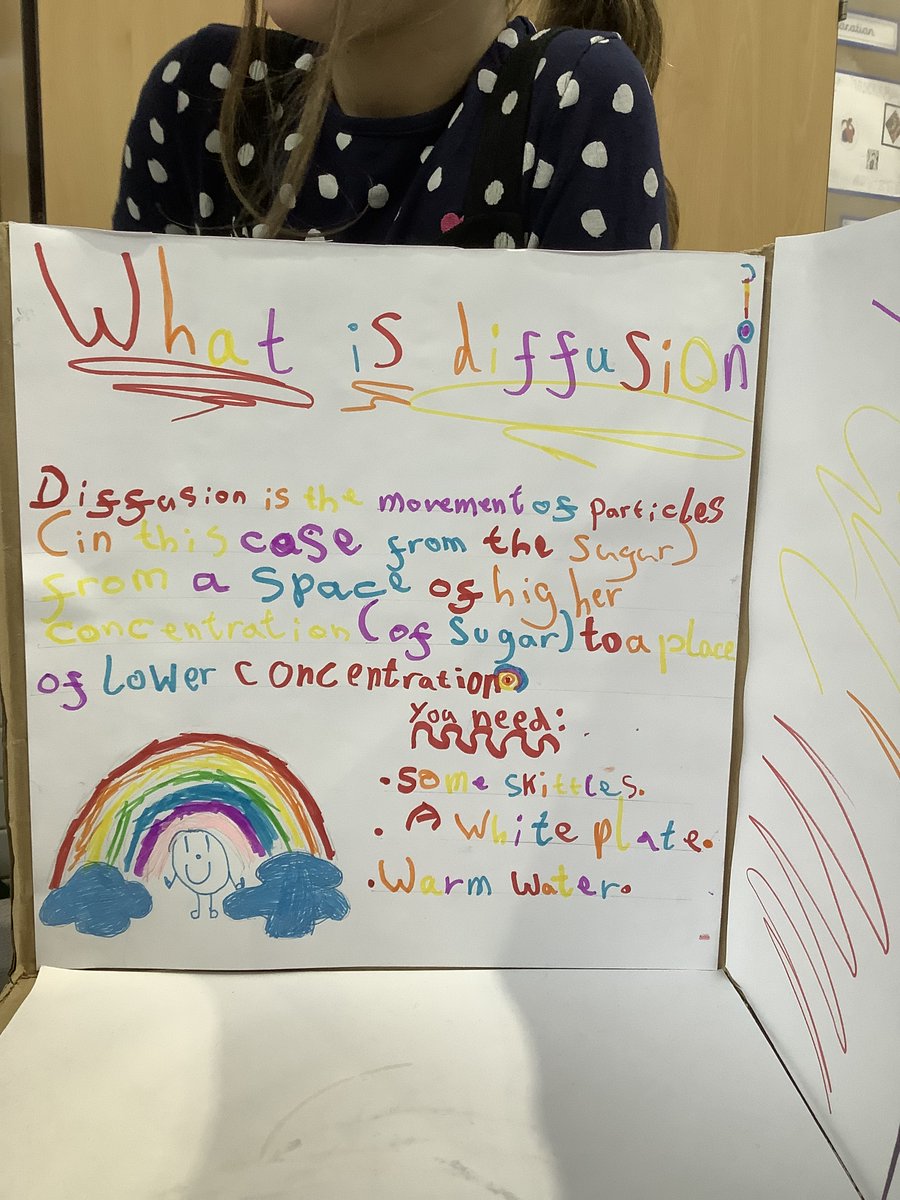 What is diffusion?
Diffusion is the movement of particles
(in this case from the sugar)
from a space of higher
concentration (of sugar) to a place
of lower concentration.
You need:
• some skittles.
• A white plate.
• Warm water.